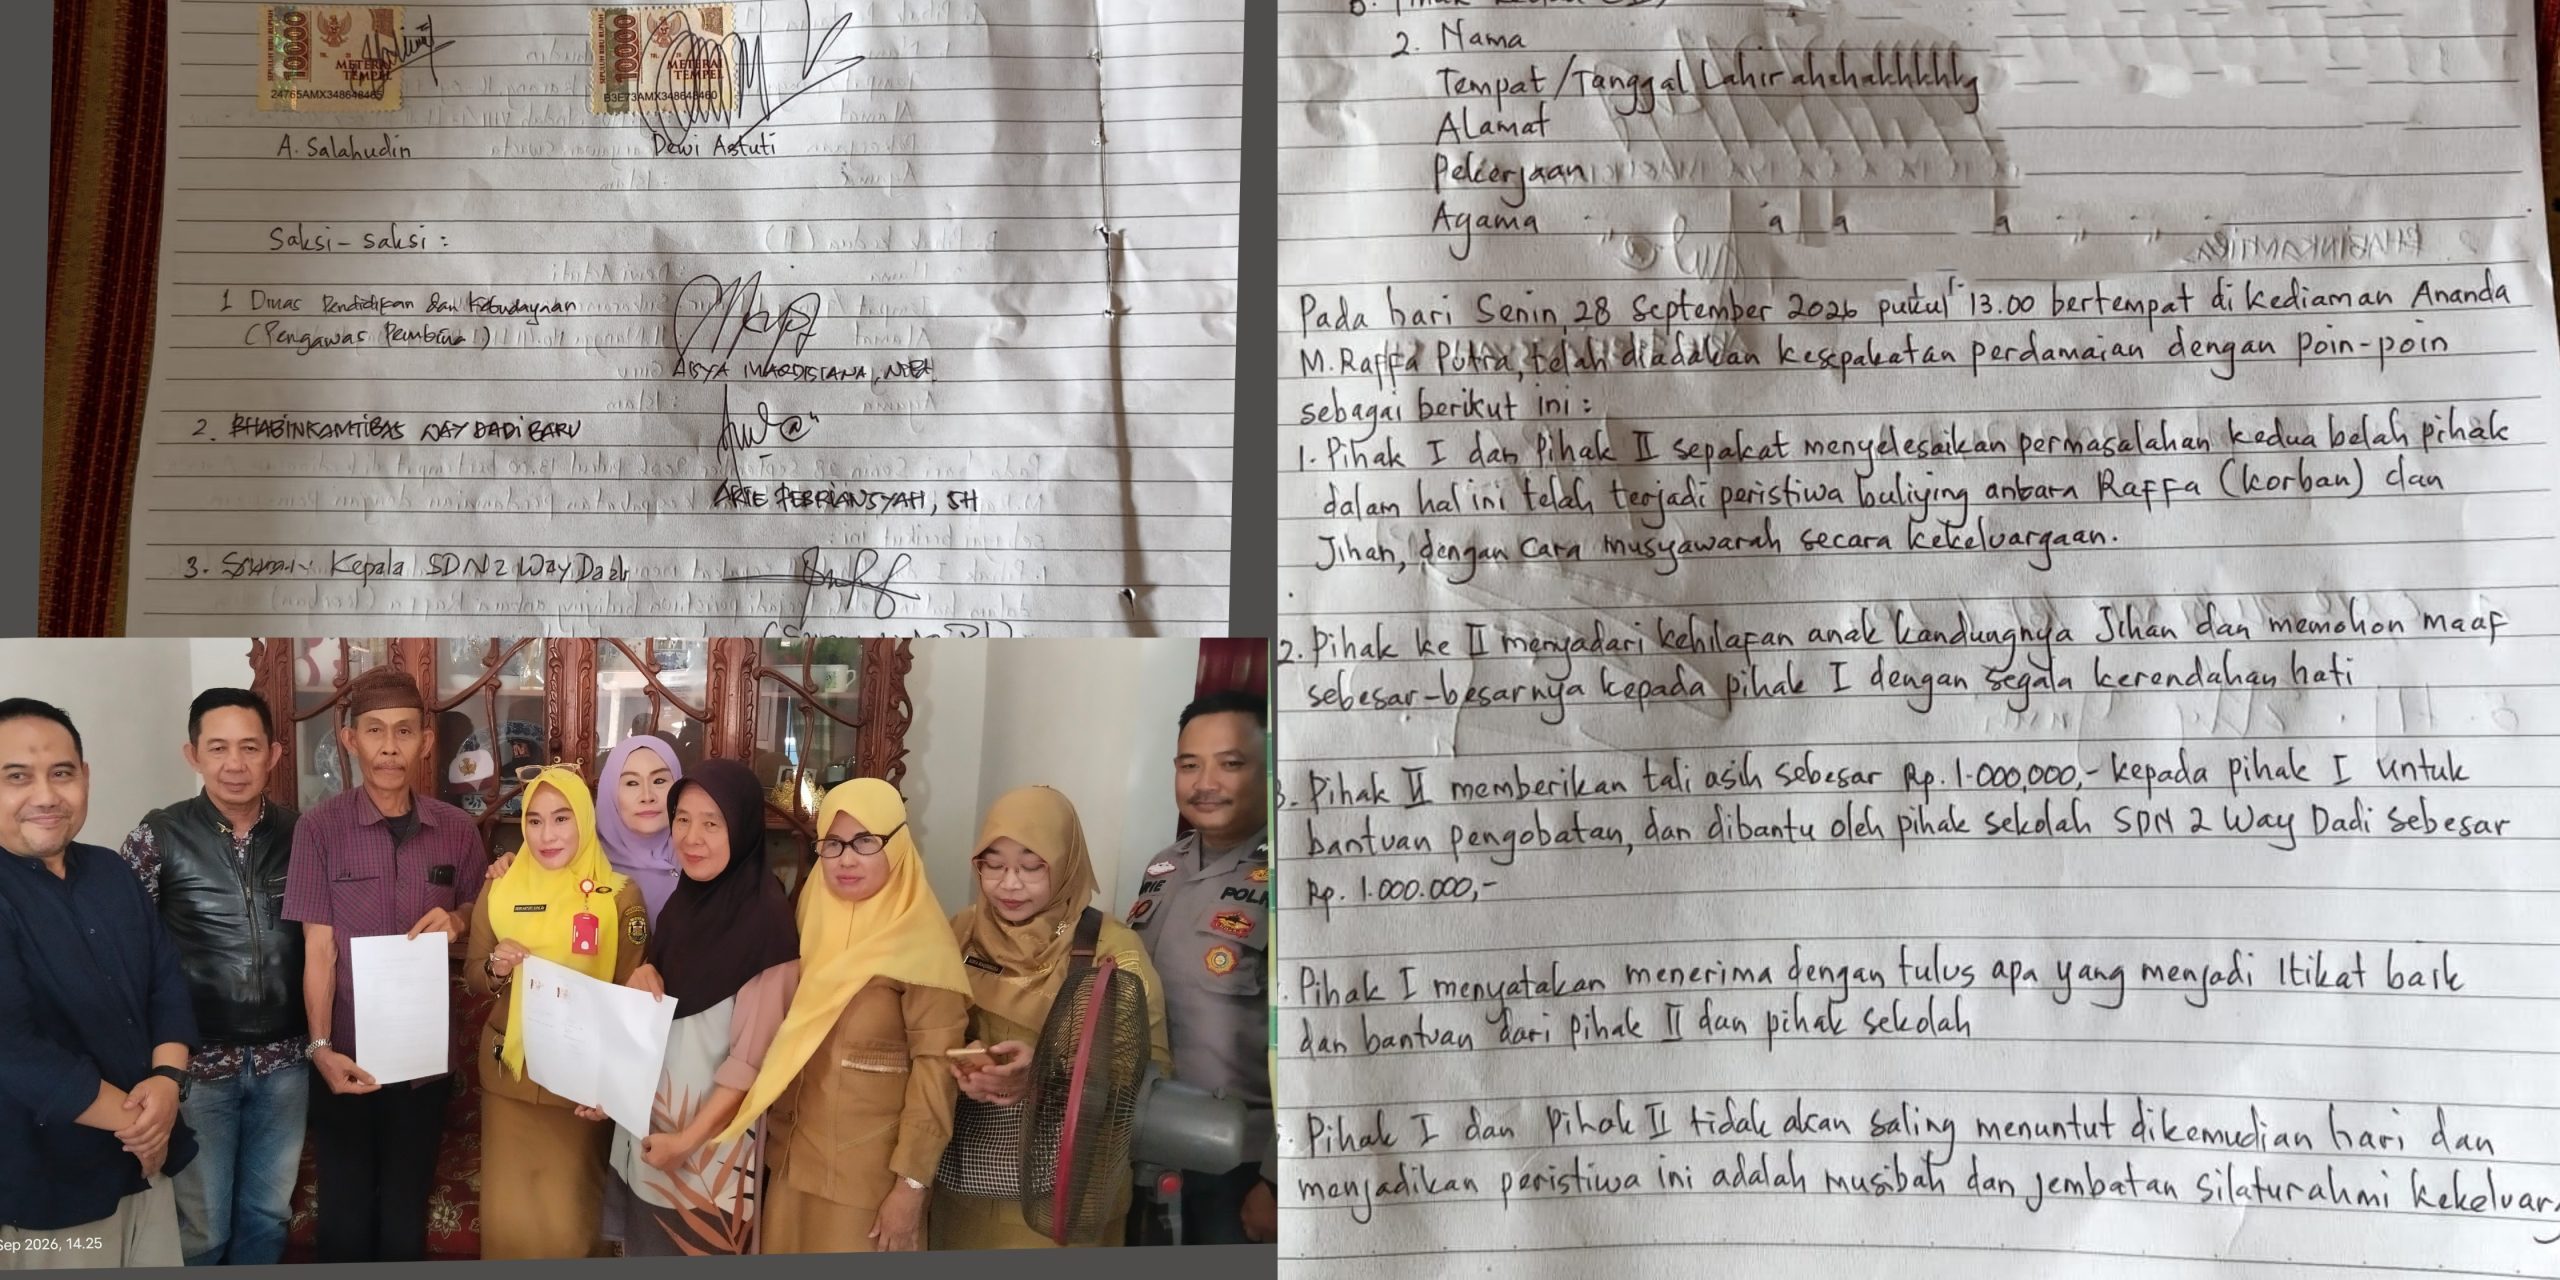 SEPULUH RIBU RUPIAH
10000
METERAI
TEMPEL
24765AMX348648465
10000
METERAI
TEMPEL
B3E73AMX348648460
A. Salahudin
Dewi Astuti
Saksi-saksi :
1 Dinas Pendidikan dan Kebudayaan
(Pengawas Pembina)
2. BHABINKAMTIBAS WAY DADI BARU
ARIE FEBRIANSYAH, SH
3. Kepala SDN 2 Way Dadi
POLRI
Sep 2026, 14.25
2. Nama
Tempat/Tanggal Lahir
Alamat
Pekerjaan
Agama
Pada hari Senin, 28 September 2026 pukul 13.00 bertempat di kediaman Ananda
M. Raffa Putra, telah diadakan kesepakatan perdamaian dengan poin-poin
sebagai berikut ini :
1. Pihak I dan Pihak II sepakat menyelesaikan permasalahan kedua belah pihak
dalam hal ini telah terjadi peristiwa buliying antara Raffa (korban) dan
Jihan, dengan cara musyawarah secara kekeluargaan.
2. Pihak ke II menyadari kehilafan anak kandungnya Jihan dan memohon maaf
sebesar-besarnya kepada pihak I dengan segala kerendahan hati
3. Pihak II memberikan tali asih sebesar Rp. 1.000.000,- kepada pihak I untuk
bantuan pengobatan, dan dibantu oleh pihak sekolah SDN 2 Way Dadi sebesar
Rp. 1.000.000,-
Pihak I menyatakan menerima dengan tulus apa yang menjadi itikat baik
dan bantuan dari pihak II dan pihak sekolah
Pihak I dan Pihak II tidak akan saling menuntut dikemudian hari dan
menjadikan peristiwa ini adalah musibah dan jembatan silaturahmi kekeluar